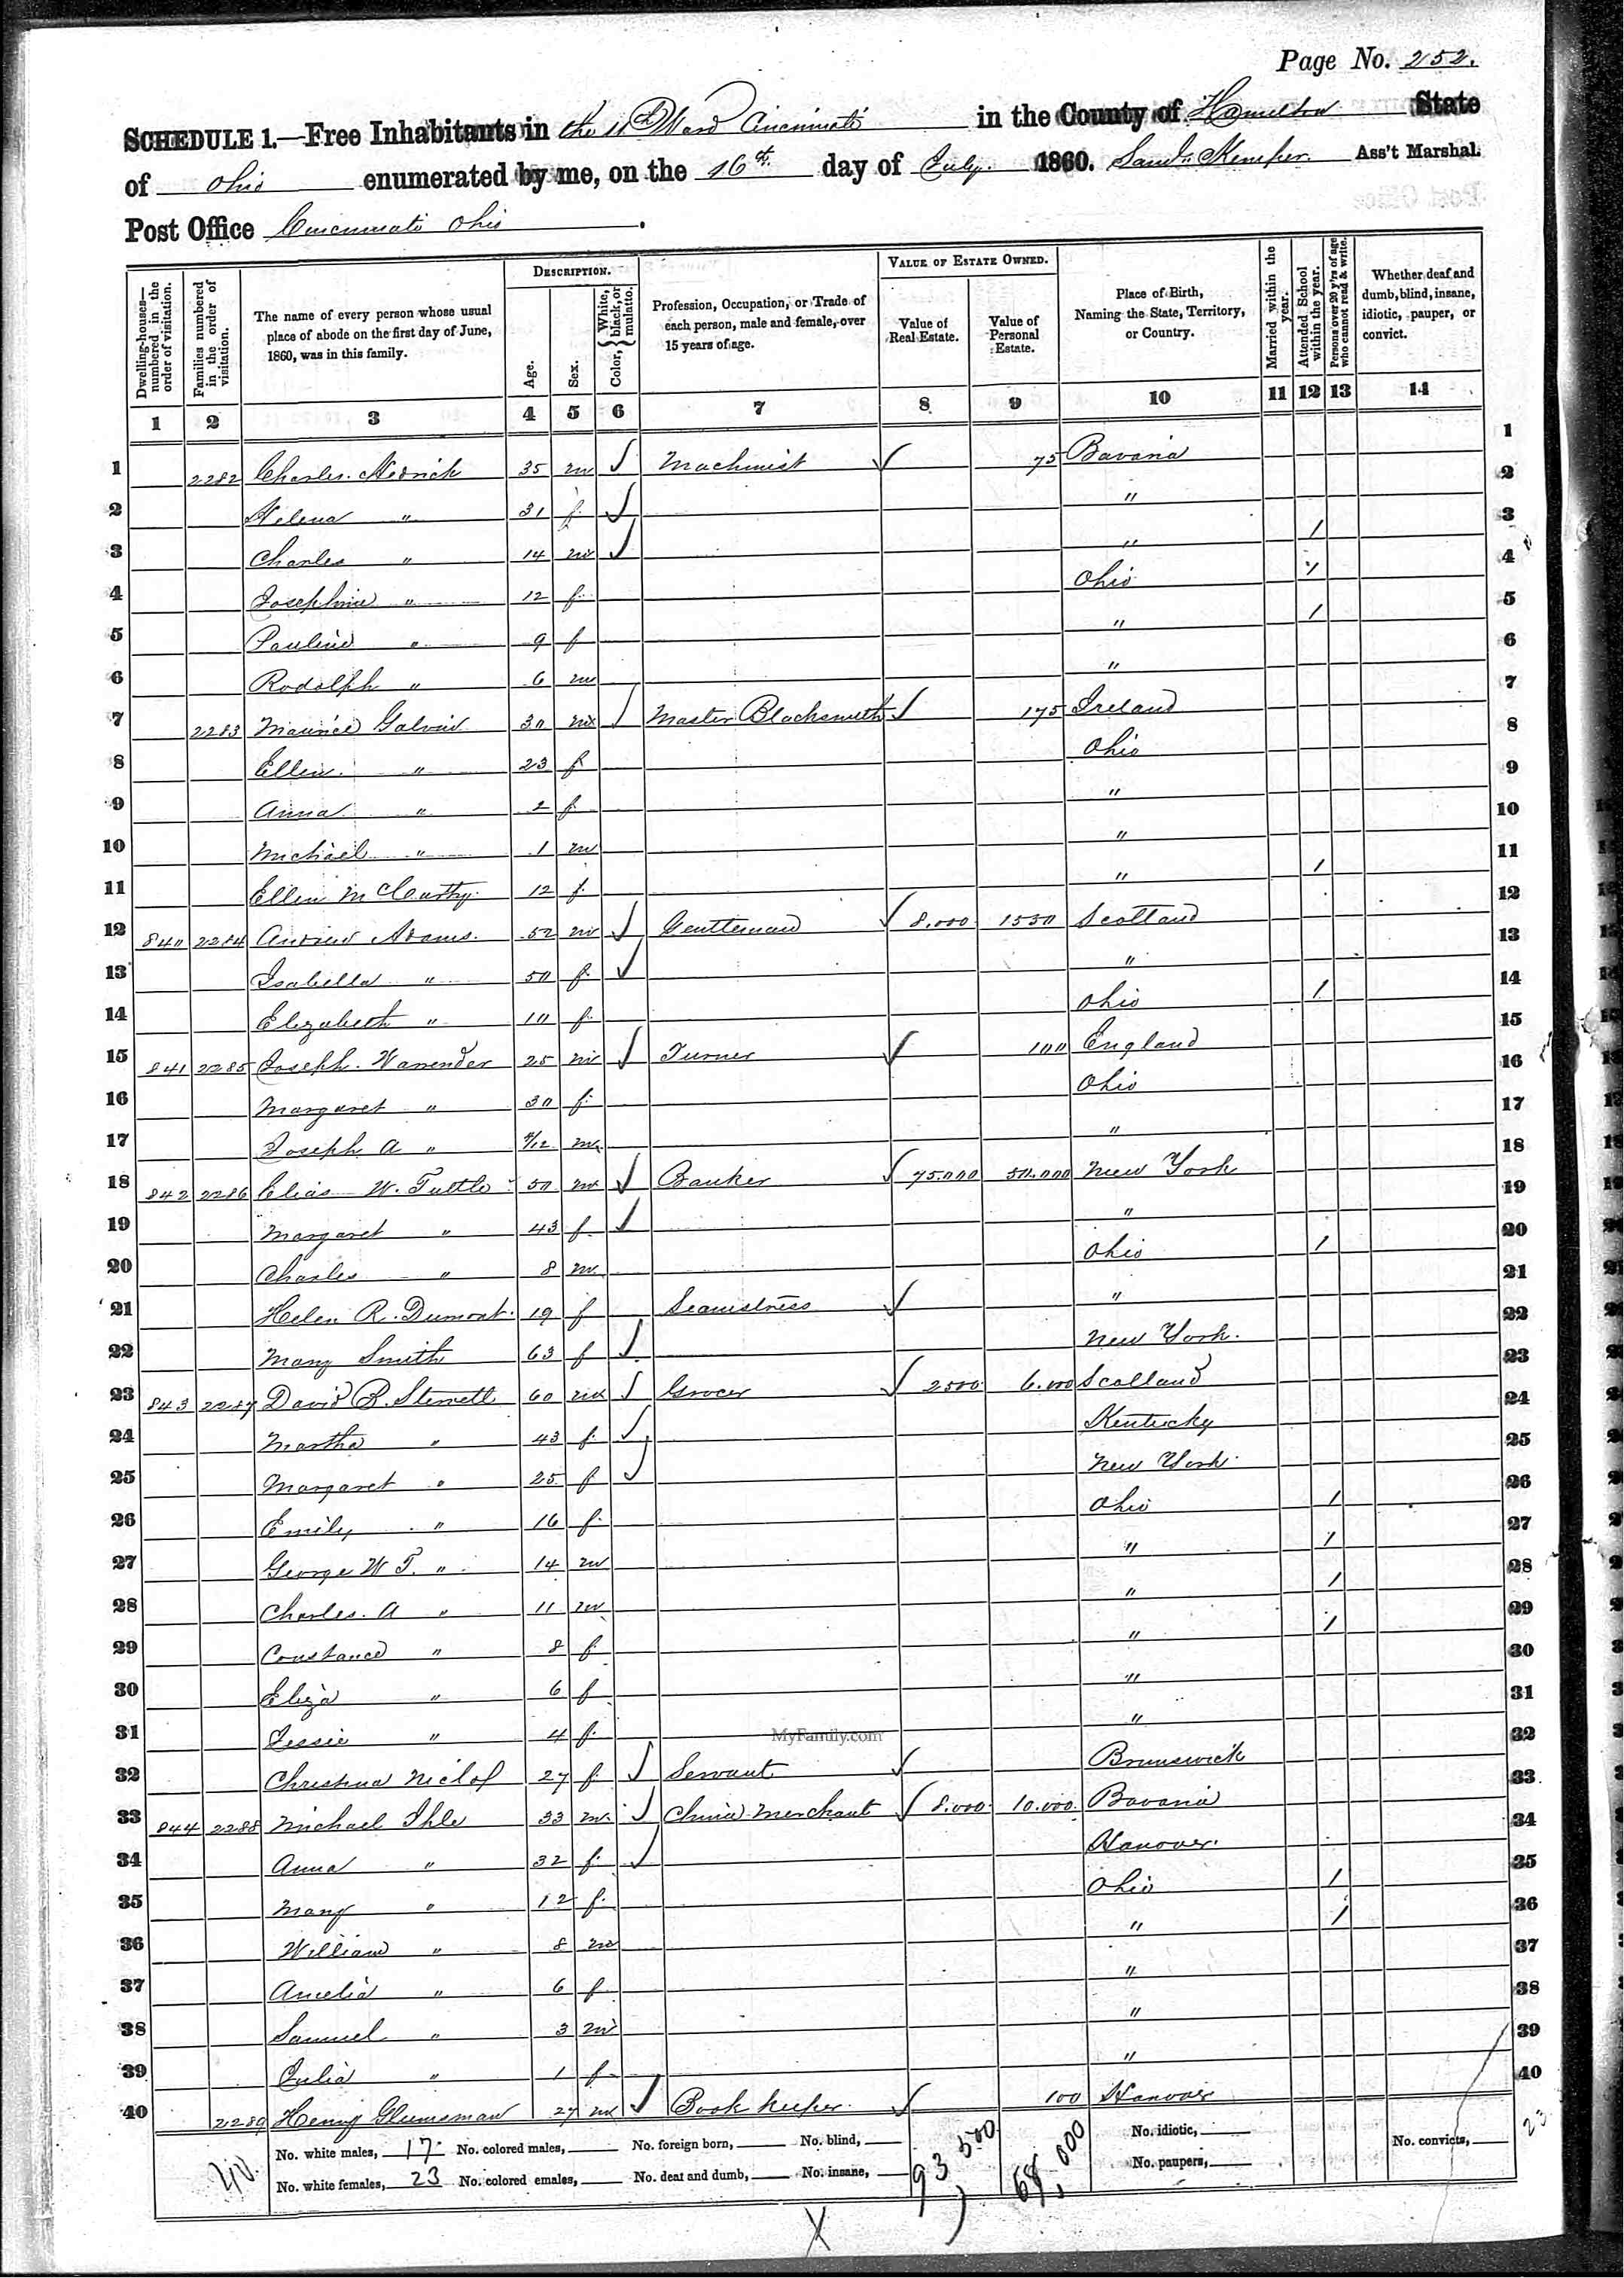 Page No. 252.
SCHEDULE 1.—Free Inhabitants in the 11th Ward Cincinnati in the County of Hamilton State
of Ohio enumerated by me, on the 16th day of July 1860. Saml. Kemper. Ass't Marshal.
Post Office Cincinnati Ohio.
DESCRIPTION. VALUE OF ESTATE OWNED.
Dwelling-houses—numbered in the order of visitation. Families numbered in the order of visitation. The name of every person whose usual place of abode on the first day of June, 1860, was in this family. Age. Sex. Color, { White, black, or mulatto. Profession, Occupation, or Trade of each person, male and female, over 15 years of age. Value of Real Estate. Value of Personal Estate. Place of Birth, Naming the State, Territory, or Country. Married within the year. Attended School within the year. Persons over 20 y'rs of age who cannot read & write. Whether deaf and dumb, blind, insane, idiotic, pauper, or convict.
1 2 3 4 5 6 7 8 9 10 11 12 13 14
1 2282 Charles Hedrick 35 m √ Machinist √ 75 Bavaria 1
2 Helena " 31 f √ " 2
3 Charles " 14 m √ " / 3
4 Josephine " 12 f Ohio / 4
5 Pauline " 9 f " / 5
6 Rodolph " 6 m " 6
7 2283 Maurice Galvin 30 m √ Master Blacksmith √ 175 Ireland 7
8 Ellen " 23 f Ohio 8
9 Anna " 2 f " 9
10 Michael " 1 m " 10
11 Ellen McCarthy 12 f " / 11
12 840 2284 Andrew Adams. 52 m √ Gentleman √ 8,000 1550 Scotland 12
13 Isabella " 50 f √ " 13
14 Elizabeth " 10 f Ohio / 14
15 841 2285 Joseph Warrender 25 m √ Turner √ 100 England 15
16 Margaret " 30 f Ohio 16
17 Joseph A " /12 m "  17
18 842 2286 Elias W. Tuttle 50 m √ Banker √ 75.000 50.000 New York 18
19 Margaret " 43 f √ " 19
20 Charles " 8 m Ohio / 20
21 Helen R. Dumont 19 f Seamstress √ " 21
22 Mary Smith 63 f √ New York. 22
23 843 2287 David R. Sterrett 60 m √ Grocer √ 2500 6.000 Scotland 23
24 Martha " 43 f √ Kentucky 24
25 Margaret " 25 f √ New York 25
26 Emily " 16 f Ohio / 26
27 George W T. " 14 m " / 27
28 Charles A " 11 m " / 28
29 Constance " 8 f " / 29
30 Eliza " 6 f " 30
31 Jessie " 4 f " 31
MyFamily.com
32 Christina 27 f √ Servant √ Brunswick 32
33 844 2288 Michael Ihle 33 m √ China Merchant √ 8.000 10.000 Bavaria 33
34 Anna " 32 f √ Hanover. 34
35 Mary " 12 f Ohio / 35
36 William " 8 m " / 36
37 Amelia " 6 f " 37
38 Samuel " 3 m " 38
39 Julia " 1 f " 39
40 2289 Henry Glumsman 27 m √ Book keeper. √ 100 Hanover 40
40. No. white males, 17 No. colored males, No. foreign born, No. blind, 93,500 68,000 No. idiotic, No. convicts, 23
No. white females, 23 No. colored emales, No. deaf and dumb, No. insane, No. paupers,
X